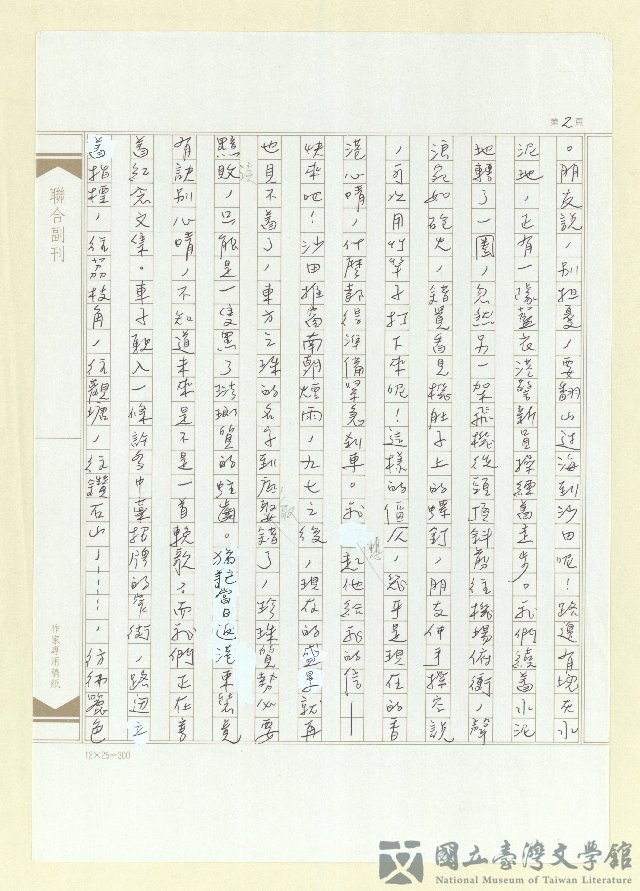 第2頁
。朋友說，別担憂，要翻山过海到沙田呢！路边有塊灰水
泥地，正有一隊藍衣港警新員操經著走步。我們繞著水泥
地轉了一圈，忽然另一架飛機從頭頂斜剪往機場俯衝，聲
浪宛如砲火，錯覺看見機肚子上的螺釘，朋友伸手探空說
，可以用竹竿子打下來呢！這樣的傴仄，幾乎是現在的香
港心晴，什麼都得準備緊急刹車。我想起他給我的信—
快來吧！沙田推窗南朝煙雨，九七之後，現在的盛景就再
也見不著了，東方之珠的名字到底取錯了，珍珠質勢必要
黯淡，只能是一隻黑了琺瑯質的蛀齒。猶記當日返港東装竟
有訣別心晴，不知道未來是不是一首輓歌？而我們正在善
著紀念文集。車子駛入一條許多中藥招牌的窄街，路边立
著指標，往荔枝角，往觀塘，往鑽石山……，彷彿麗色
聯合副刊
作家專用稿紙
12×25=300
國立臺灣文學館
National Museum of Taiwan Literature